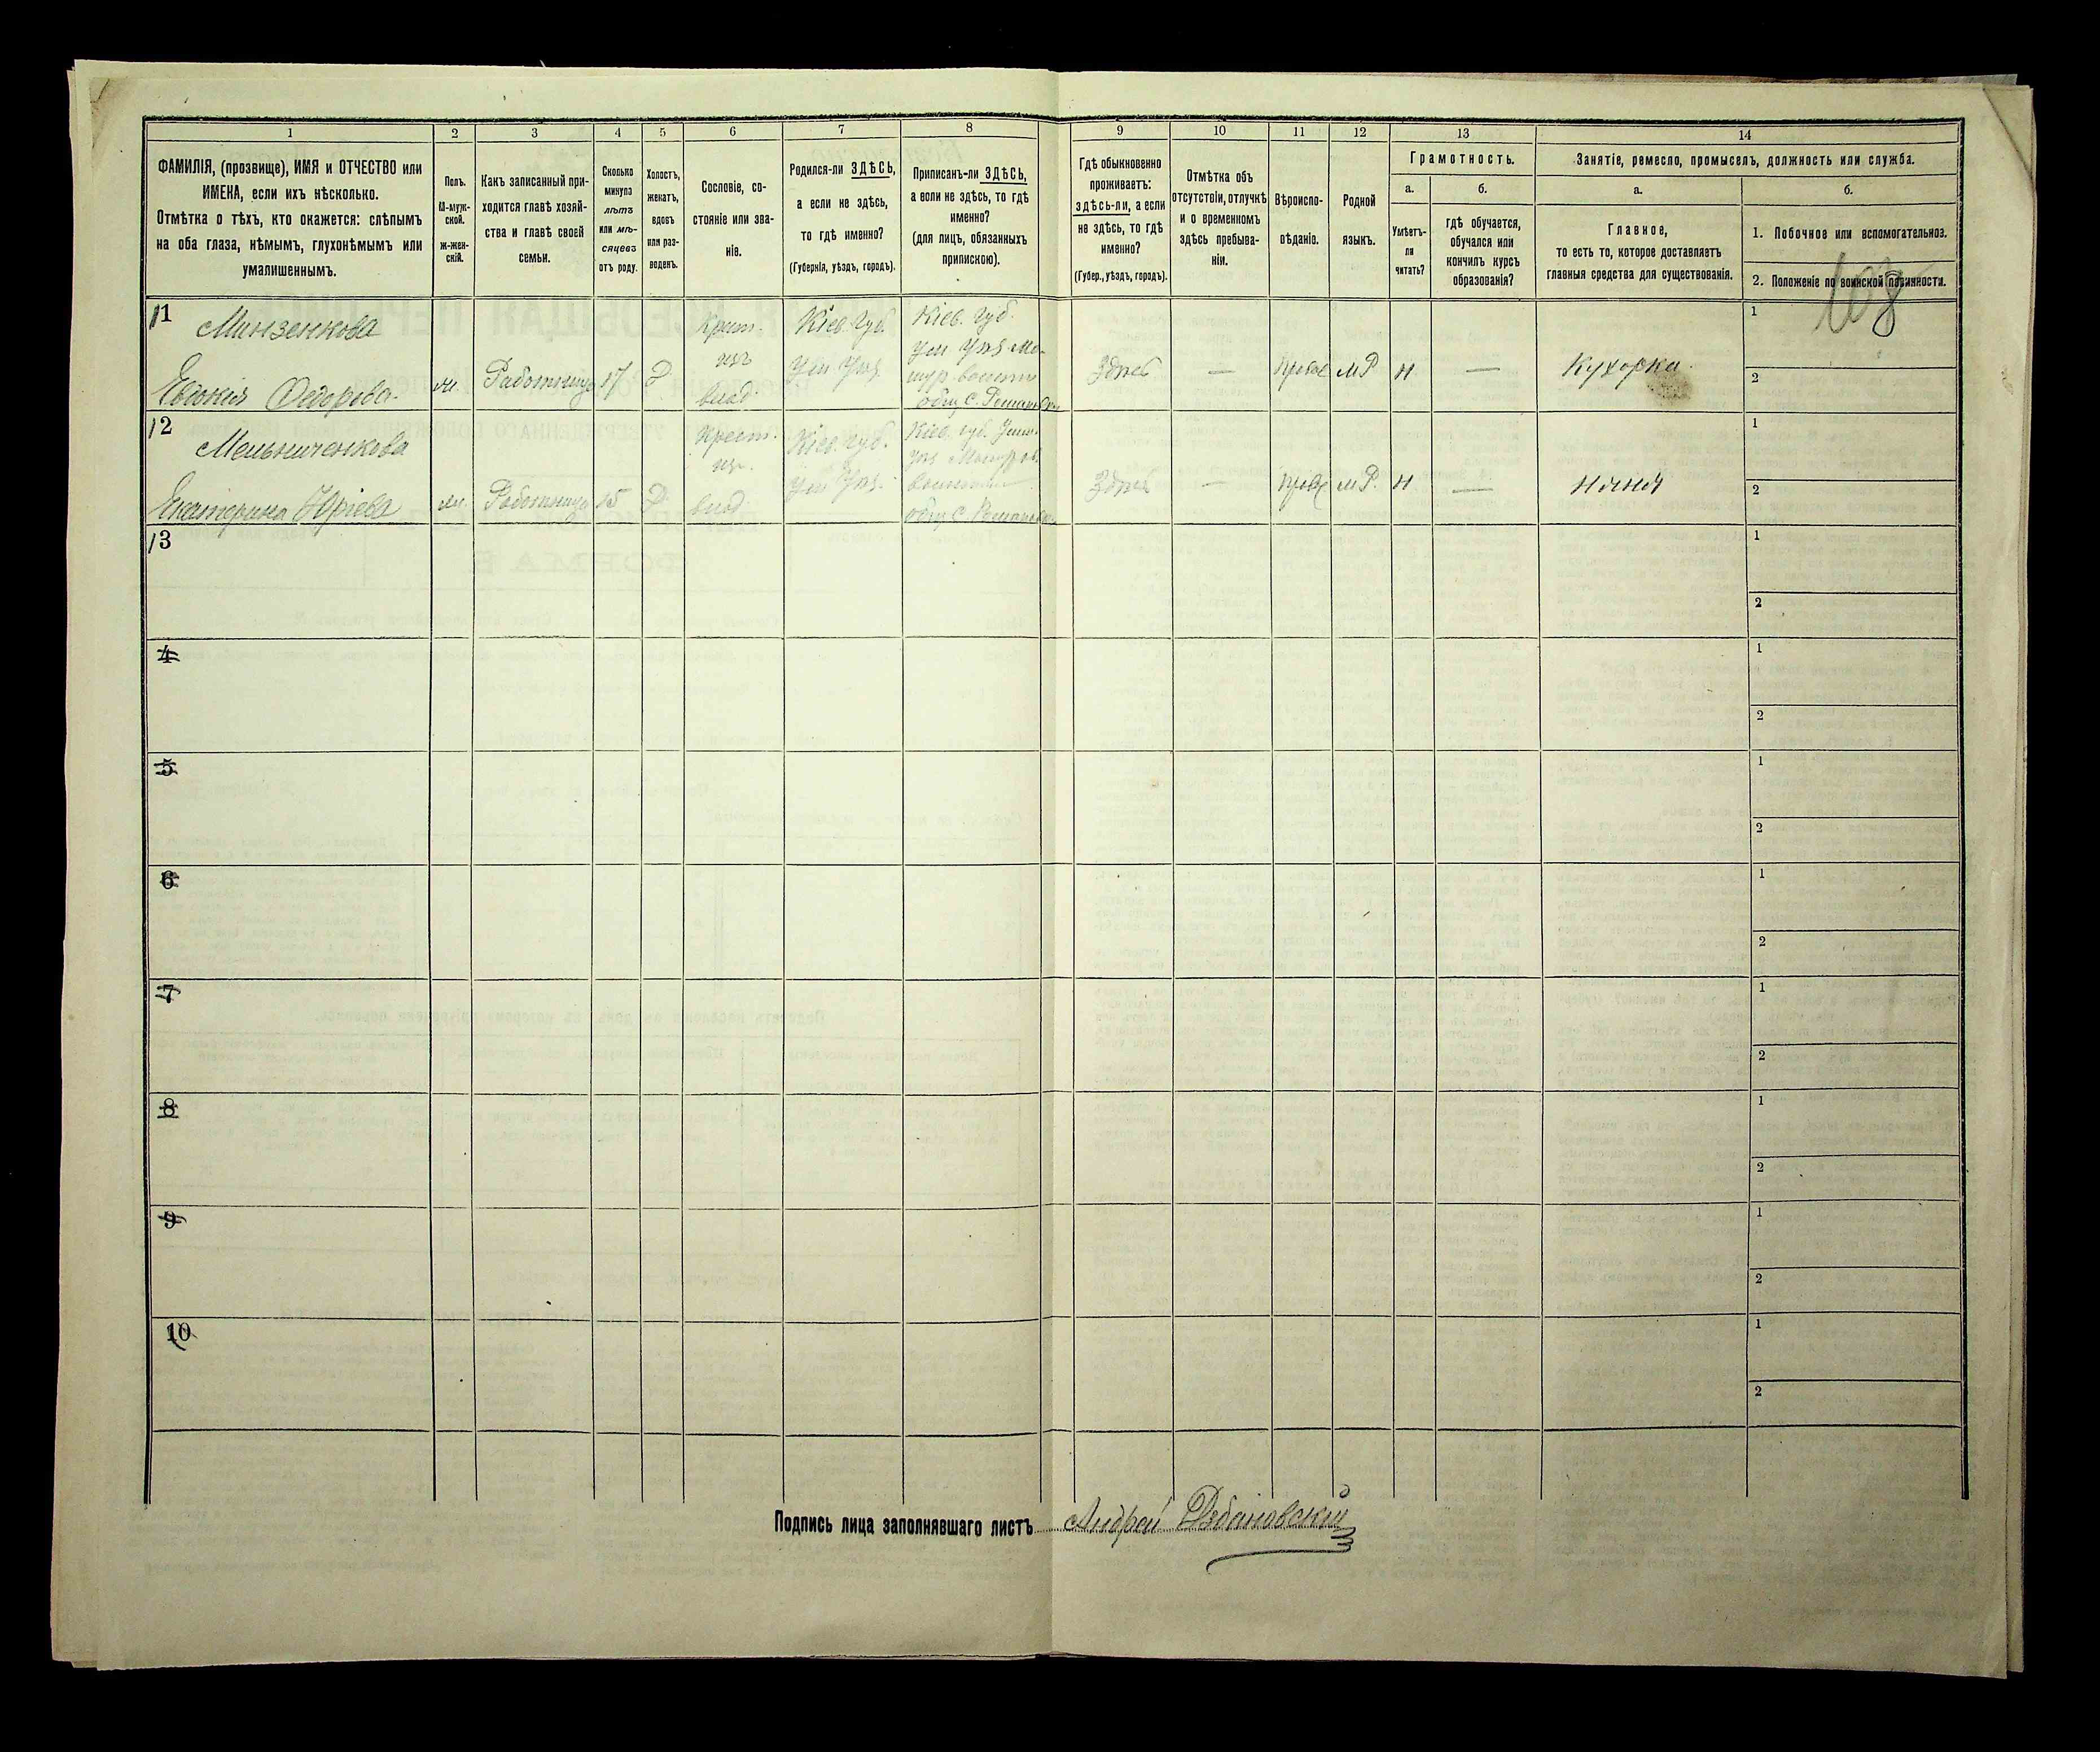 1 2 3 4 5 6 7 8 9 10 11 12 13 14
ФАМИЛІЯ, (прозвище), ИМЯ и ОТЧЕСТВО или
ИМЕНА, если ихъ нѣсколько.
Отмѣтка о тѣхъ, кто окажется: слѣпымъ
на оба глаза, нѣмымъ, глухонѣмымъ или
умалишеннымъ.
Полъ.
М-муж-
ской.
ж-жен-
скій.
Какъ записанный при-
ходится главѣ хозяй-
ства и главѣ своей
семьи.
Сколько
минуло
лѣтъ
или мѣ-
сяцевъ
отъ роду.
Холостъ,
женатъ,
вдовъ
или раз-
веденъ.
Сословіе, со-
стояніе или зва-
ніе.
Родился-ли ЗДѢСЬ,
а если не здѣсь,
то гдѣ именно?
(Губернія, уѣздъ, городъ).
Приписанъ-ли ЗДѢСЬ,
а если не здѣсь, то гдѣ
именно?
(для лицъ, обязанныхъ
припискою).
Гдѣ обыкновенно
проживаетъ:
здѣсь-ли, а если
не здѣсь, то гдѣ
именно?
(Губер., уѣздъ, городъ).
Отмѣтка объ
отсутствіи, отлучкѣ
и о временномъ
здѣсь пребыва-
ніи.
Вѣроиспо-
вѣданіе.
Родной
языкъ.
Грамотность.
а.
Умѣетъ-
ли
читать?
б.
гдѣ обучается,
обучался или
кончилъ курсъ
образованія?
Занятіе, ремесло, промыселъ, должность или служба.
а.
Главное,
то есть то, которое доставляетъ
главныя средства для существованія.
б.
1. Побочное или вспомогательное.
2. Положеніе по воинской повинности.
108
11
Минзенкова
Евдокія Федорова.
ж.
Работница
17
Д
Крест.
изъ
влад.
Кіев. Губ.
Ум Уѣз.
Кіев. Губ.
Ум Уѣз Ма-
нур. волости
общ С. Романовк
Здѣсь
—
Прав
М Р
Н
—
Кухарка.
1
2
12
Мельниченкова
Екатерина Юріева
ж.
Работница
15
Д
Крест.
изъ.
влад.
Кіев. Губ.
Ум Уѣз.
Кіев. губ. Ум.
уѣз
волости
общ С. Романовк
Здѣсь
—
Прав
М Р.
Н
—
Няня
1
2
13
1
2
4
1
2
5
1
2
6
1
2
7
1
2
8
1
2
9
1
2
10
1
2
Подпись лица заполнявшаго листъ Андрей